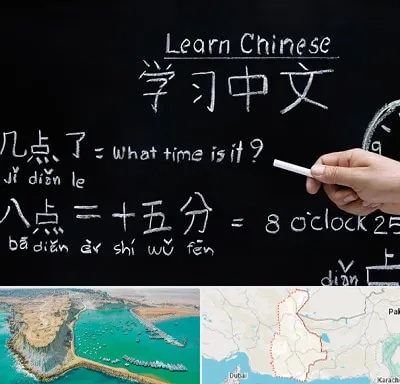 Learn Chinese
学习中文
9
几点了 = What time is it ?
Jǐ diǎn le
八点二十五分 = 8 o'clock 25
bā diǎn èr shí wǔ fēn
diǎn
Pak
Dubai
Karach